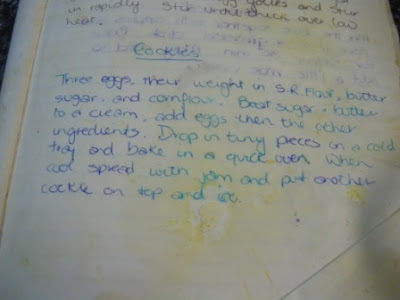 in rapidly Stir until thick over low
heat.
Cockles
Three eggs, their weight in S.R. Flour, butter
sugar, and cornflour. Beat sugar & butter
to a cream, add eggs then the other
ingredients. Drop in tiny pieces on a cold
tray and bake in a quick oven When
cool spread with jam and put another
cockle on top and ice.